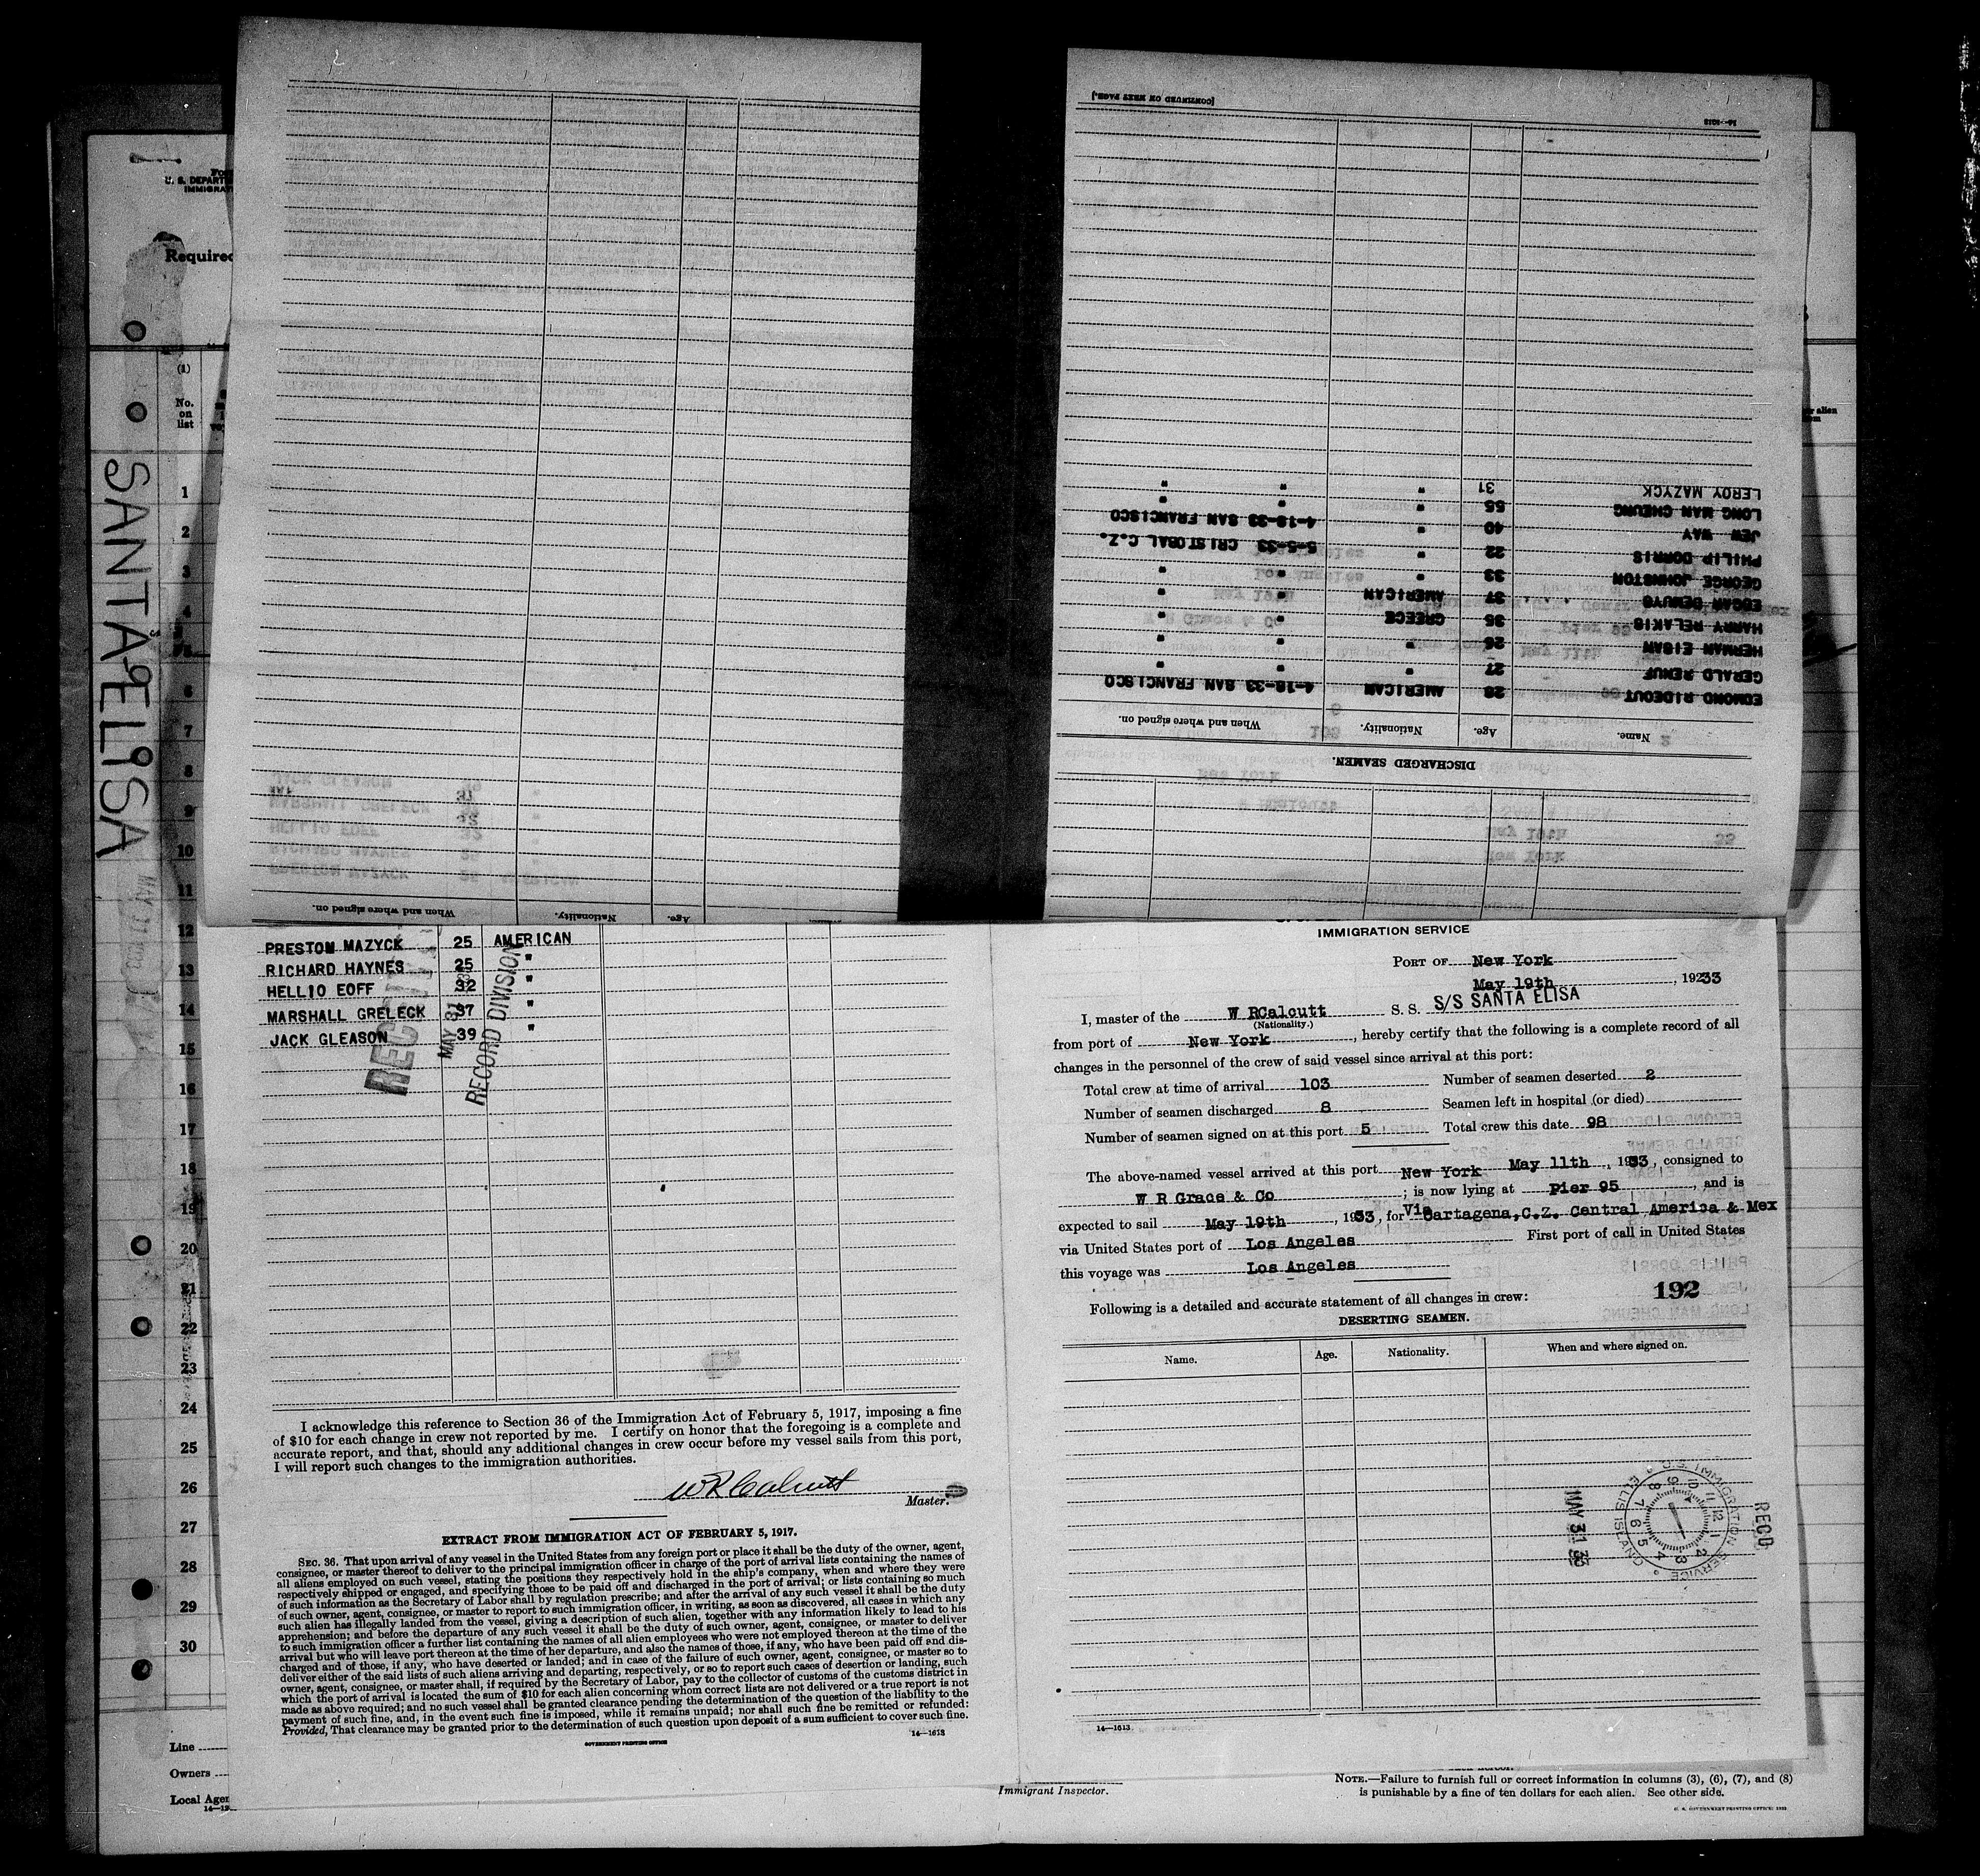 U. S. DEPART
IMMIGRAT
Required
(1)
No.
on
list
1
2
3
4
5
6
7
8
9
10
11
12
13
14
15
16
17
18
19
20
21
22
23
24
25
26
27
28
29
30
SANTA ELISA
Line
Owners
Local Agen
[CONTINUED ON NEXT PAGE.]
14—1613
DISCHARGED SEAMEN.
Name. Age. Nationality. When and where signed on.
EDMOND RIDEOUT 28 AMERICAN 4-18-33 SAN FRANCISCO
GERALD RENUF 27 " " "
HERMAN EIGAN 26 " " "
HARRY RELAKIS 35 GREECE " "
EDGAR DEMUYS 37 AMERICAN " "
GEORGE JOHNSTON 33 " " "
PHILIP DORRIS 22 " 5-5-33 CRISTOBAL C.Z.
JEW WAY 40 " 4-18-33 SAN FRANCISCO
LONG MAN CHEUNG 55 " " "
LEROY MAZYCK 31 " " "
Age. Nationality. When and where signed on.
PRESTON MAZYCK 25 AMERICAN
RICHARD HAYNES 25 "
HELLIO EOFF 32 "
MARSHALL GRELECK 37 "
JACK GLEASON 39 "
MAY 31
RECORD DIVISION
I acknowledge this reference to Section 36 of the Immigration Act of February 5, 1917, imposing a fine
of $10 for each change in crew not reported by me. I certify on honor that the foregoing is a complete and
accurate report, and that, should any additional changes in crew occur before my vessel sails from this port,
I will report such changes to the immigration authorities.
W R Calcutt
Master.
EXTRACT FROM IMMIGRATION ACT OF FEBRUARY 5, 1917.
SEC. 36. That upon arrival of any vessel in the United States from any foreign port or place it shall be the duty of the owner, agent,
consignee, or master thereof to deliver to the principal immigration officer in charge of the port of arrival lists containing the names of
all aliens employed on such vessel, stating the positions they respectively hold in the ship's company, when and where they were
respectively shipped or engaged, and specifying those to be paid off and discharged in the port of arrival; or lists containing so much
of such information as the Secretary of Labor shall by regulation prescribe; and after the arrival of any such vessel it shall be the duty
of such owner, agent, consignee, or master to report to such immigration officer, in writing, as soon as discovered, all cases in which any
such alien has illegally landed from the vessel, giving a description of such alien, together with any information likely to lead to his
apprehension; and before the departure of any such vessel it shall be the duty of such owner, agent, consignee, or master to deliver
to such immigration officer a further list containing the names of all alien employees who were not employed thereon at the time of the
arrival but who will leave port thereon at the time of her departure, and also the names of those, if any, who have been paid off and dis-
charged and of those, if any, who have deserted or landed; and in case of the failure of such owner, agent, consignee, or master so to
deliver either of the said lists of such aliens arriving and departing, respectively, or so to report such cases of desertion or landing, such
owner, agent, consignee, or master shall, if required by the Secretary of Labor, pay to the collector of customs of the customs district in
which the port of arrival is located the sum of $10 for each alien concerning whom correct lists are not delivered or a true report is not
made as above required; and no such vessel shall be granted clearance pending the determination of the question of the liability to the
payment of such fine, and, in the event such fine is imposed, while it remains unpaid; nor shall such fine be remitted or refunded:
Provided, That clearance may be granted prior to the determination of such question upon deposit of a sum sufficient to cover such fine.
GOVERNMENT PRINTING OFFICE 14—1613
IMMIGRATION SERVICE
PORT OF New York
May 19th, 1933
I, master of the W RCalcutt S. S. S/S SANTA ELISA
(Nationality.)
from port of New York, hereby certify that the following is a complete record of all
changes in the personnel of the crew of said vessel since arrival at this port:
Total crew at time of arrival 103 Number of seamen deserted 2
Number of seamen discharged 8 Seamen left in hospital (or died)
Number of seamen signed on at this port 5 Total crew this date 98
The above-named vessel arrived at this port New York May 11th, 1933, consigned to
W R Grace & Co; is now lying at Pier 95, and is
expected to sail May 19th, 1933, for Via Cartagena,C.Z. Central America & Mex
via United States port of Los Angeles First port of call in United States
this voyage was Los Angeles
192
Following is a detailed and accurate statement of all changes in crew:
DESERTING SEAMEN.
Name. Age. Nationality. When and where signed on.
REC'D
U.S. IMMIGRATION SERVICE ELLIS ISLAND
MAY 31 33
14—1613
Immigrant Inspector.
NOTE.—Failure to furnish full or correct information in columns (3), (6), (7), and (8)
is punishable by a fine of ten dollars for each alien. See other side.
U. S. GOVERNMENT PRINTING OFFICE: 1932